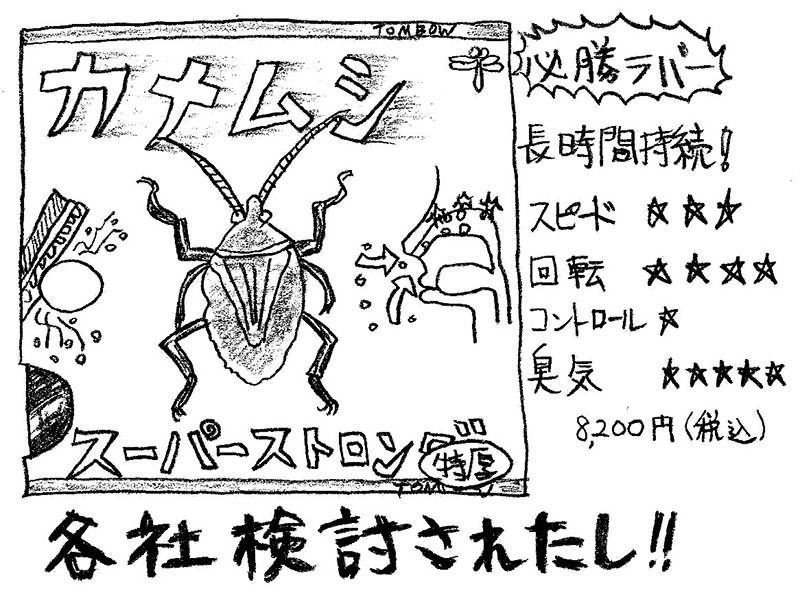 TOMBOW
カメムシ
スーパーストロング
特厚
TOMBOW
必勝ラバー
長時間持続!
スピード ★★★
回転 ★★★★
コントロール ★
臭気 ★★★★★
8,200円(税込)
各社検討されたし!!